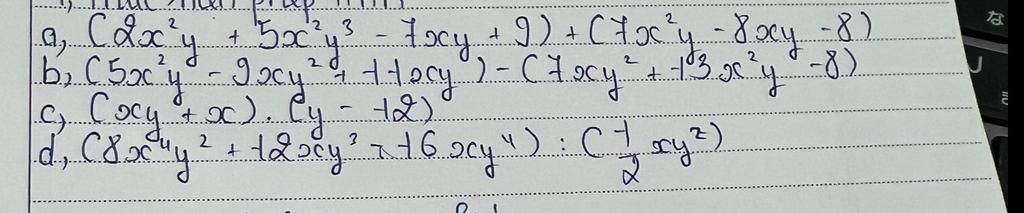 a, (2x²y + 5x²y³ - 7xy + 9) + (7x²y - 8xy - 8)
b, (5x²y - 9xy² + 11xy) - (7xy² + 13x²y - 8)
c, (xy + x) . (y - 12)
d, (8x⁴y² + 12xy³ - 16xy⁴) : (1/2 xy²)